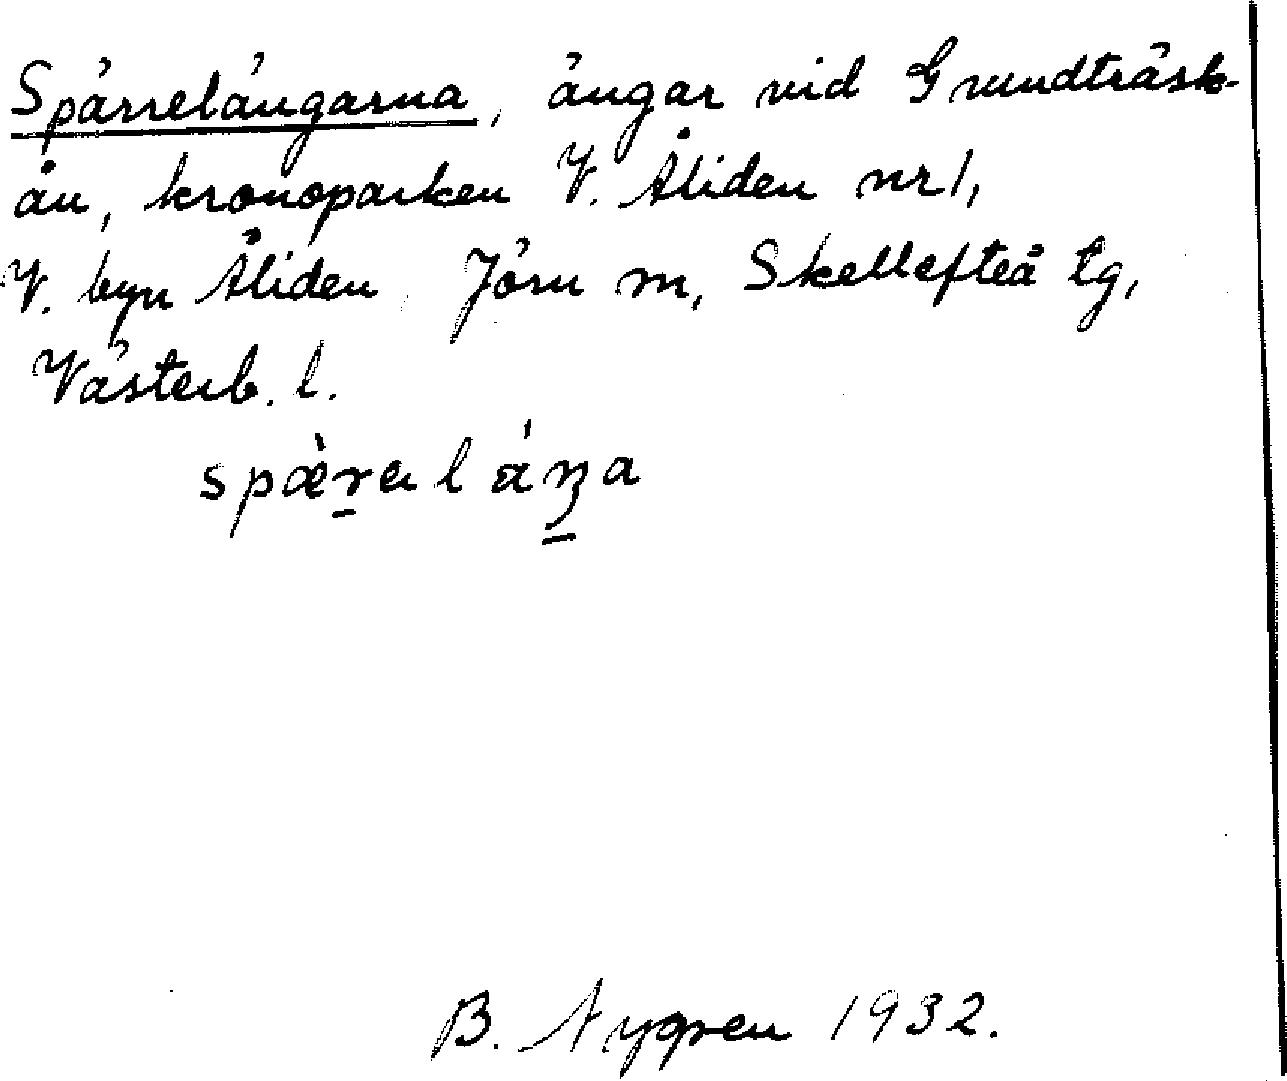 Spärrelängarna, ängar vid Grundträsk-
ån, kronoparken V. Åliden nr 1,
V. byn Åliden, Jörn sn, Skellefteå tg,
Västerb. l.
spæ̀ra l áŋa
B. Nygren 1932.